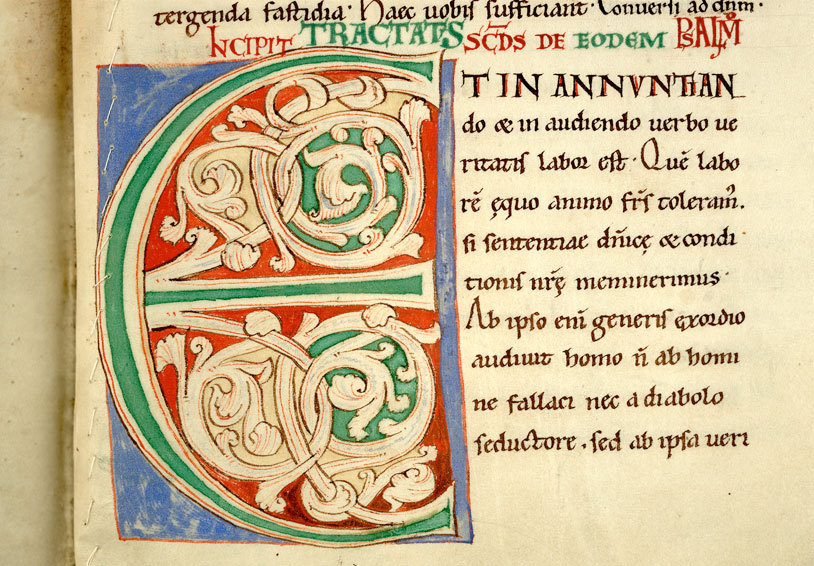 tergenda fastidia· Haec uobis sufficiant· Conuersi ad dnm̄·
INCIPIT TRACTATS SC̄DS DE EODEM PSALM̄
ET IN ANNVNTIAN
do & in audiendo uerbo ue
ritatis labor est· Quē labo
rē ęquo animo fr̄s toleram̄.
si sententiae dn̄icę & condi
tionis nr̄ę meminerimus·
Ab ipso eni᷒ generis exordio
audiuit homo n̄ ab homi
ne fallaci nec a diabolo
seductore. sed ab ipsa ueri